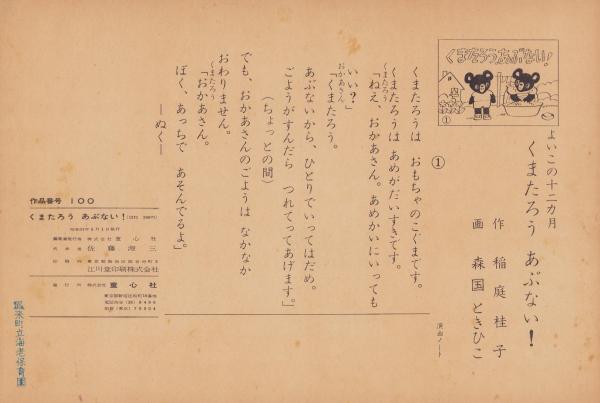 よいこの十二カ月
くまたろう あぶない!
作 稲庭桂子
画 森国ときひこ
くまたろうあぶない!
①
演出ノート
①
くまたろうは おもちゃのこぐまです。
くまたろうは あめがだいすきです。
くまたろう
「ねえ、おかあさん。あめかいにいっても
いい?」
おかあさん
「くまたろう。
あぶないから、ひとりでいってはだめ。
ごようがすんだら つれてってあげます。」
(ちょっとの間)
でも、おかあさんのごようは なかなか
おわりません。
くまたろう
「おかあさん。
ぼく、あっちで あそんでるよ。」
—ぬく—
作品番号 100
くまたろう あぶない!
株式会社 童心社
佐藤
江川堂印刷株式会社
発行所 株式会社 童心社
町立海老保育園